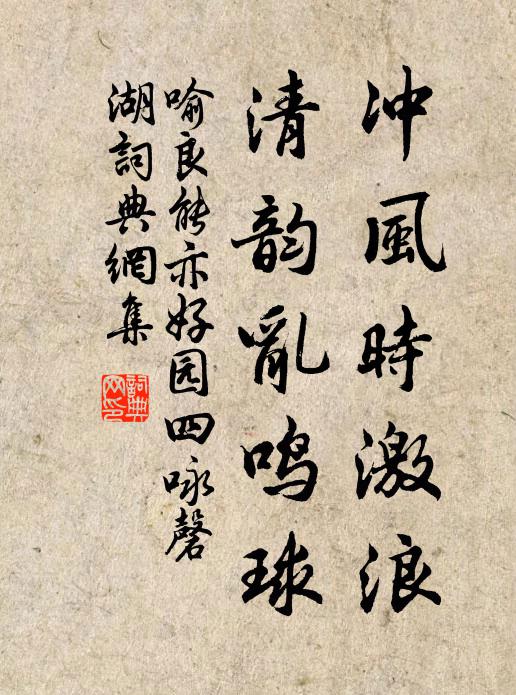 冲風時激浪
清韵亂鳴球
喻良能亦好园四咏磬
湖詞典網集
詞典网印